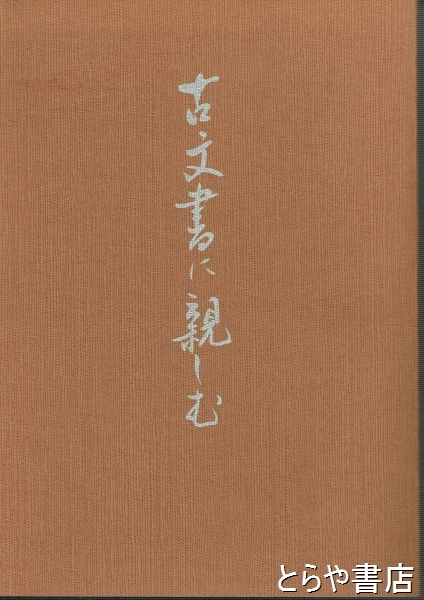 古文書に親しむ
とらや書店